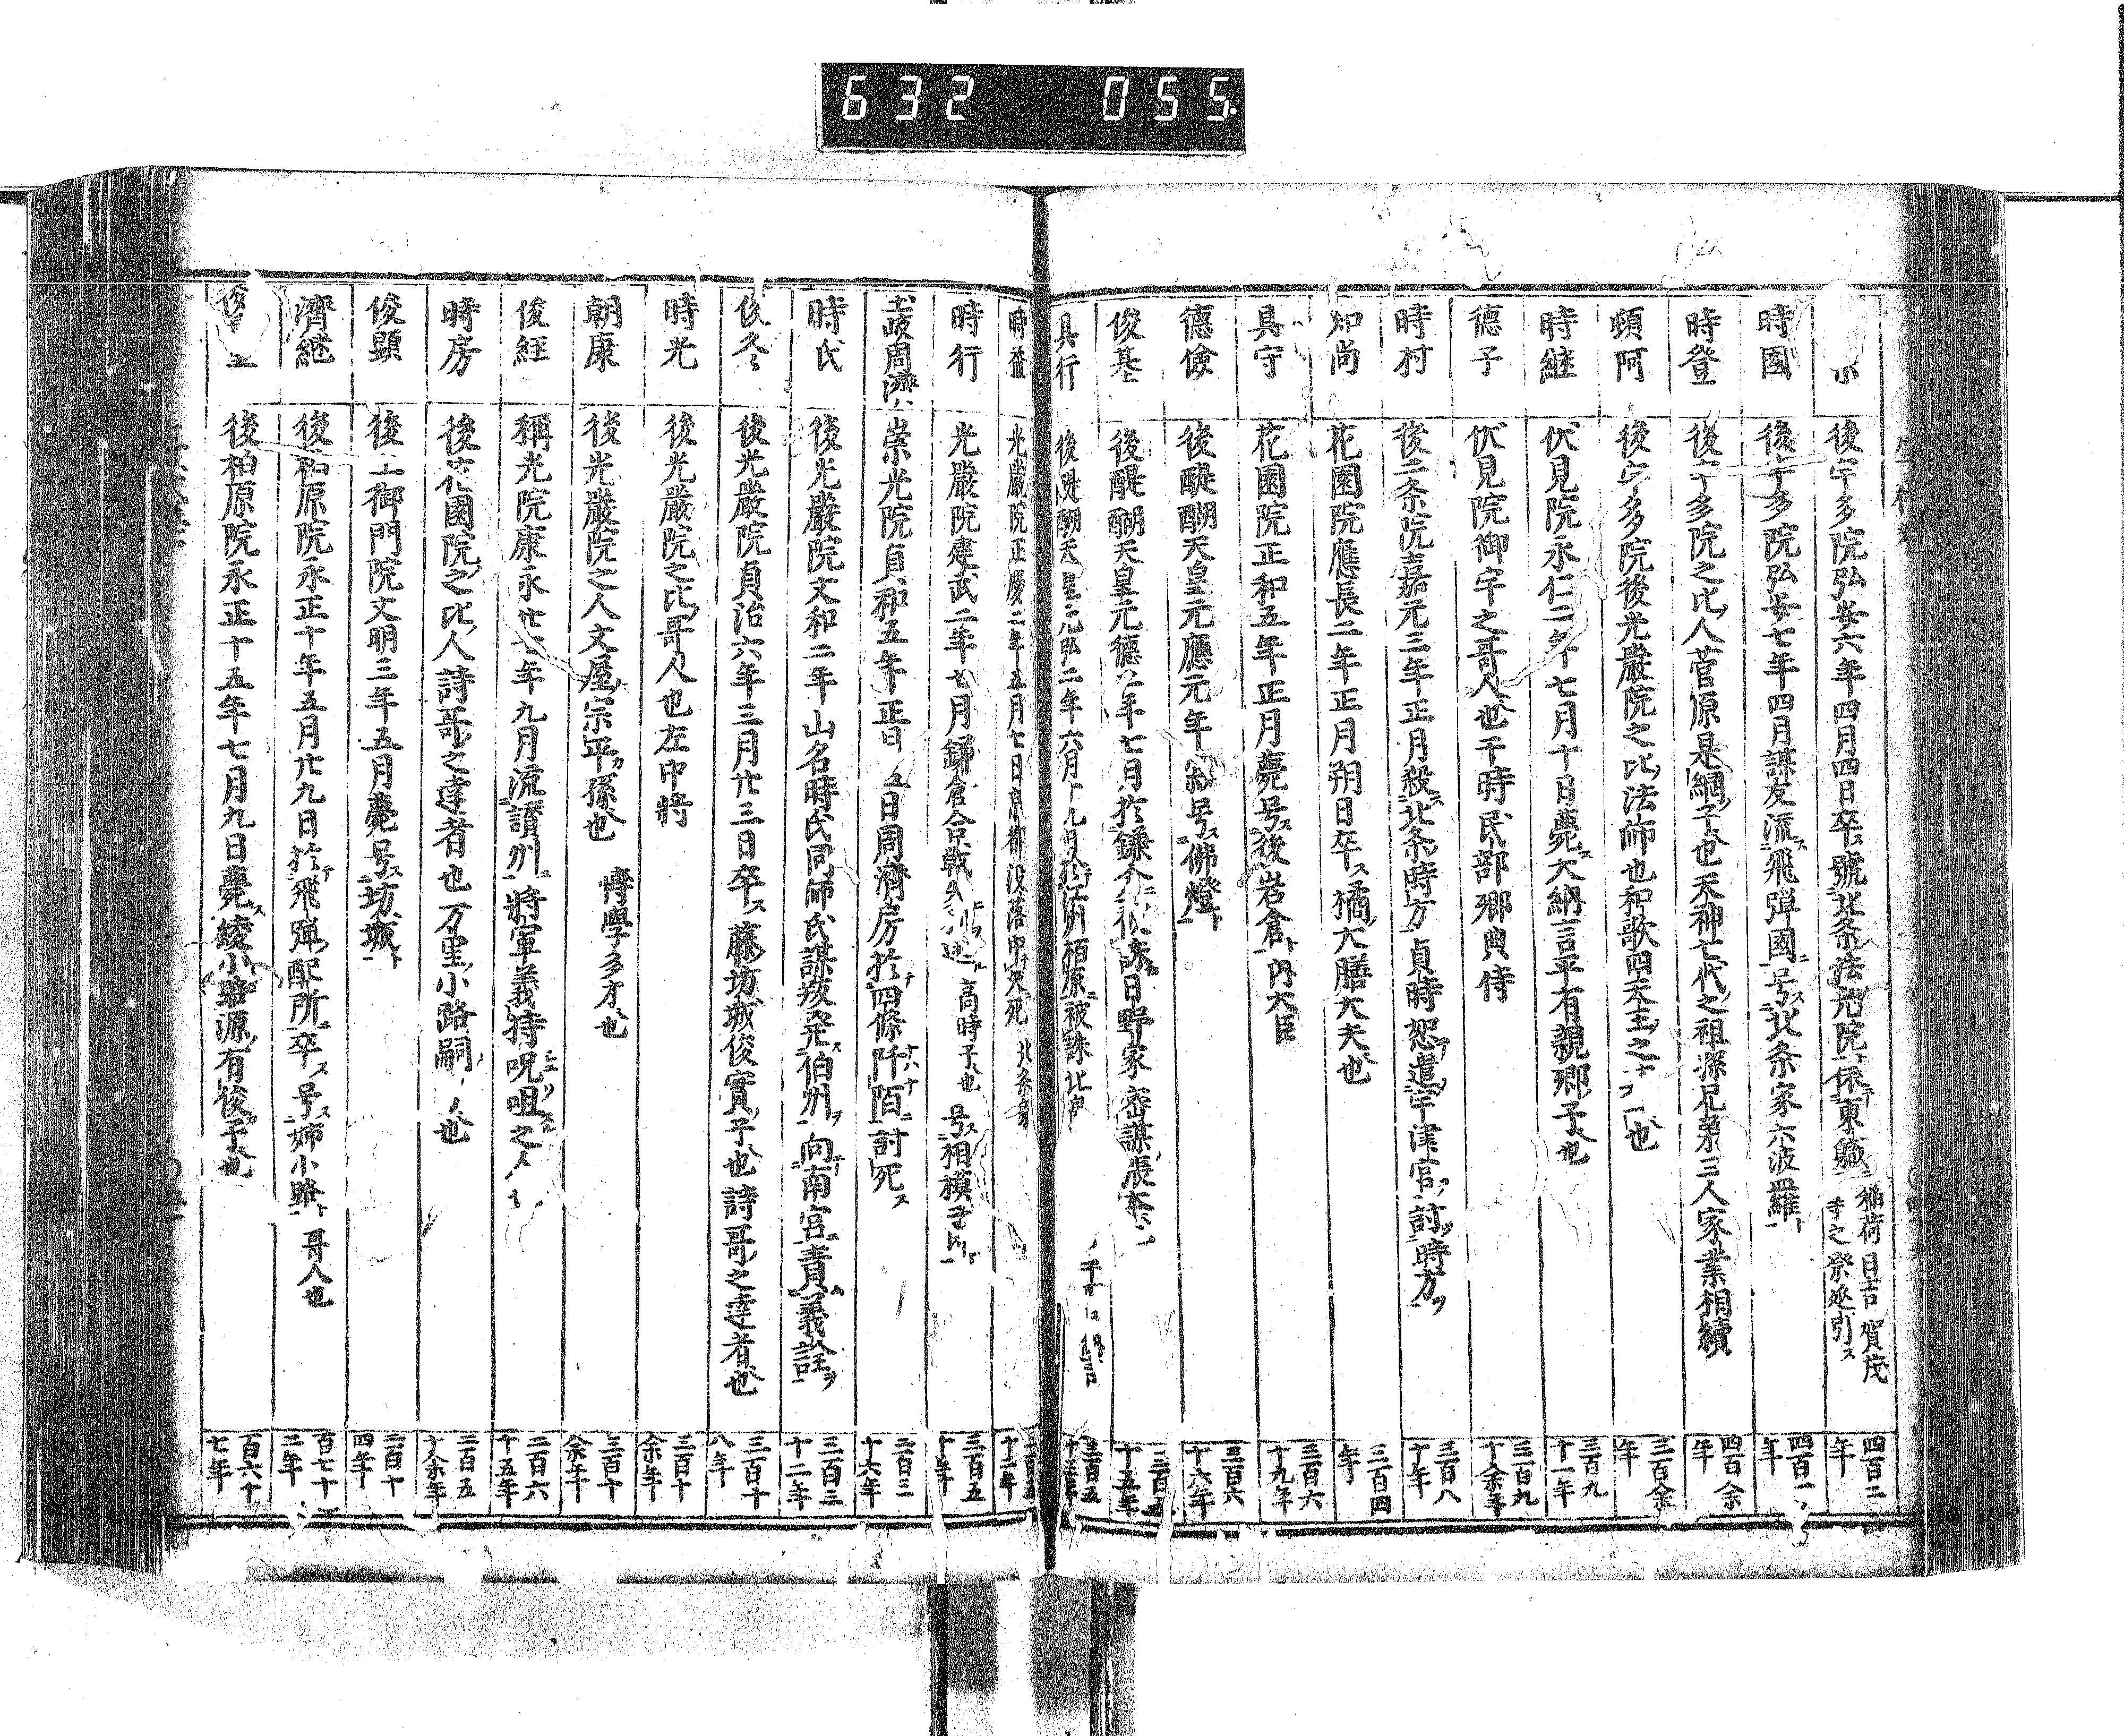 632 055.
後宇多院弘安六年四月四日卒ス號北条法光院 稲荷 日吉 賀茂 年之祭延引ス 四百二年
時國 後宇多院弘安七年四月謀友流ス飛彈國ニ号ス北条家六波羅ト 四百一年
時登 後宇多院之比ノ人菅原是綱ノ子也天神七代之祖孫兄弟三人家業相續 四百余年
頓阿 後宇多院後光嚴院之比ノ法師也和歌四天王之一也 三百余年
時継 伏見院永仁二年七月十日薨ス大納言平有親卿ノ子也 三百九十一年
德子 伏見院御宇之哥人也于時民部卿典侍 三百九十余年
時村 後二条院嘉元三年正月殺ス北条時方ヲ貞時怒遣宇津官ヲ討時方ヲ 三百八十年
知尚 花園院應長二年正月朔日卒ス橘大膳大夫也 三百四年
具守 花園院正和五年正月薨号ス後岩倉ト内大臣 三百六十九年
德儉 後醍醐天皇元應元年 号ス佛燈ト 三百六十六年
俊基 後醍醐天皇元德二年七月於鎌倉 誅日野家密謀張本 三百五十五年
具行 後醍醐天皇元弘二年六月十九日於江州栢原被誅北畠 三百五十三年
時益 光嚴院正慶二年五月七日京都没落中矢死 北条
時行 光嚴院建武二年七月鎌倉合戰 高時子也 号ス相模 三百五十年
土岐周濟 崇光院貞和五年正月五日周濟房於四條阡陌討死ス 三百三十六年
時氏 後光嚴院文和二年山名時氏同師氏謀叛発ス伯州ヲ向南宮責義詮ヲ 三百三十二年
俊冬 後光嚴院貞治六年三月廿三日卒ス藤坊城俊實ノ子也詩哥之達者也 三百十八年
時光 後光嚴院之比ノ哥人也左中将 三百十余年
朝康 後光嚴院之人文屋宗平ノ孫也 博學多才也 三百十余年
俊経 稱光院康永廿七年九月流讃州ニ將軍義持呪咀之人 二百六十五年
時房 後花園院之比ノ人詩哥之達者也万里小路嗣 也 二百五十余年
俊顕 後土御門院文明三年五月薨号ス坊城ト 二百十四年
濟継 後柏原院永正十年五月廿九日於飛彈配所卒ス号ス姉小路ト哥人也 百七十二年
後柏原院永正十五年七月九日薨ス綾小路源有俊ノ子也 百六十七年